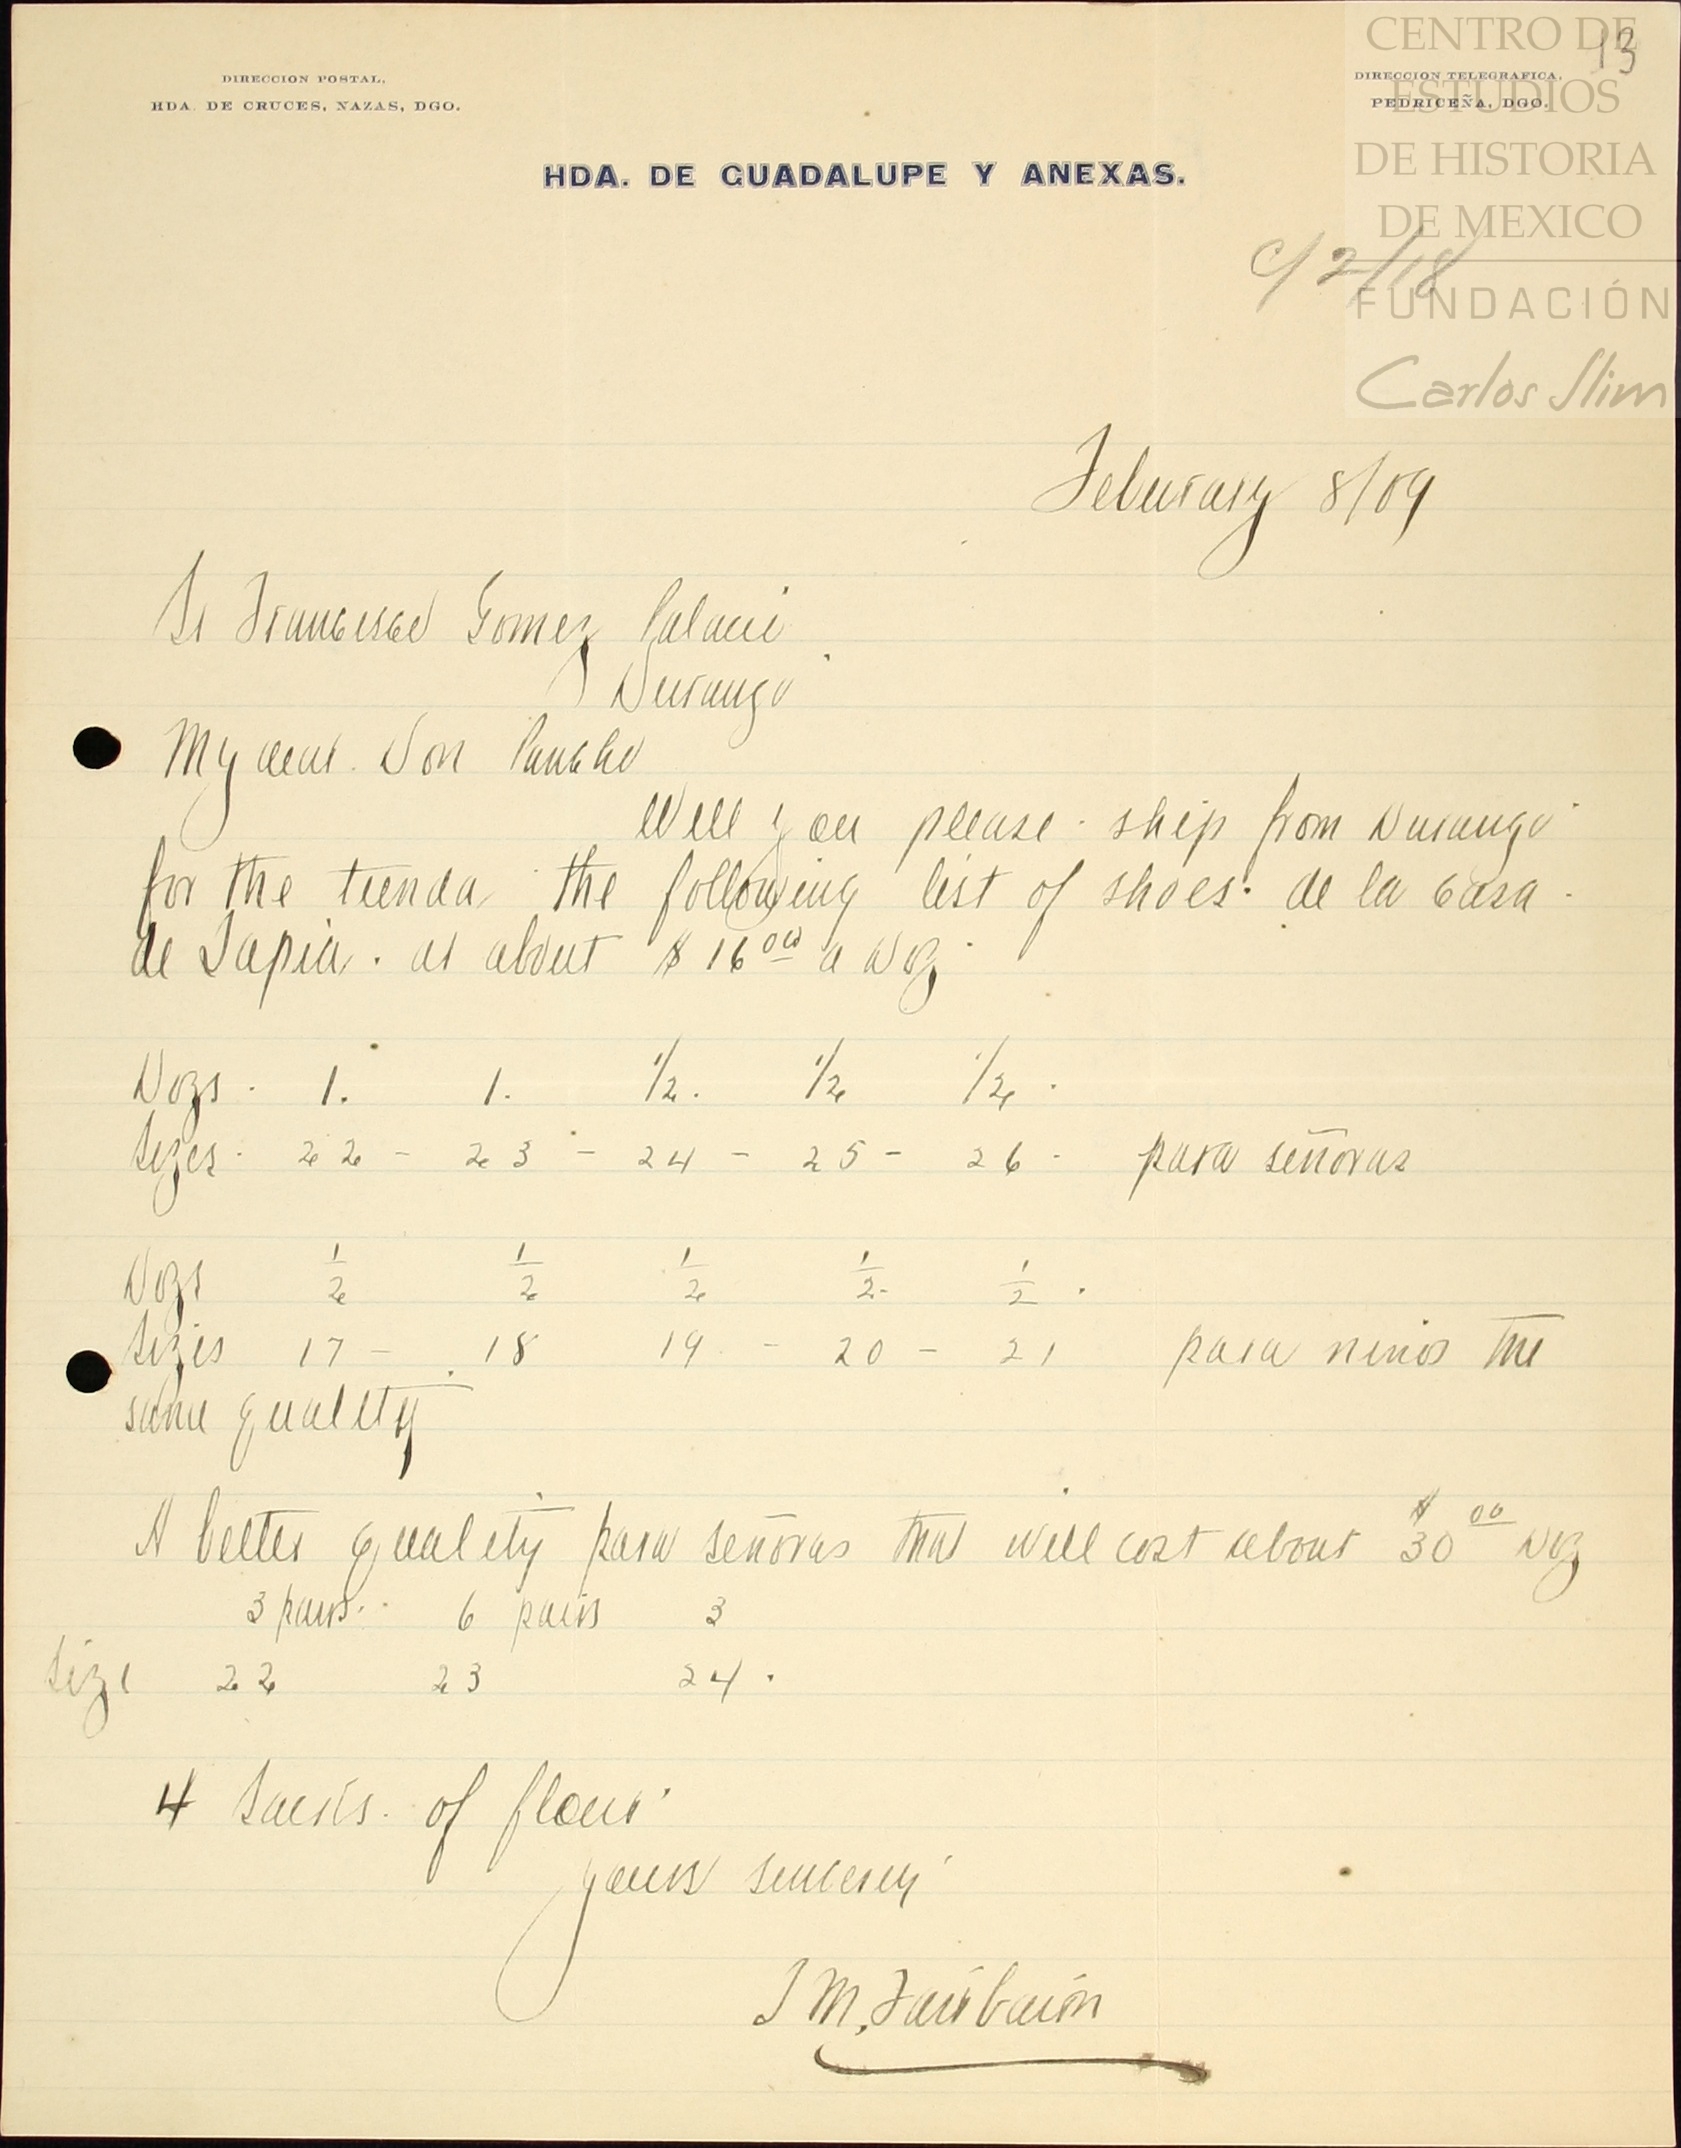 13
DIRECCION POSTAL,
HDA. DE CRUCES, NAZAS, DGO.
DIRECCION TELEGRAFICA,
PEDRICEÑA, DGO.
HDA. DE GUADALUPE Y ANEXAS.
CENTRO DE
ESTUDIOS
DE HISTORIA
DE MEXICO
FUNDACIÓN
Carlos Slim
c/ 2/18
Feburary 8/09
Sr Francisco Gomez Palacio
Durango
My dear Don Pancho
Will you please ship from Durango
for the tienda the following list of shoes. de la casa
de Tapia. at about $16 00 a Doz
Dozs. 1. 1. 1/2. 1/2 1/2.
Sizes. 22 - 23 - 24 - 25 - 26. para señoras
Dozs 1/2 1/2 1/2 1/2 1/2.
Sizes 17 - 18 19 - 20 - 21 para niños the
same quality
A better quality para señoras that will cost about $30 00 Doz
3 pairs. 6 pairs 3
Size 22 23 24.
4 Sacks. of flour
yours sincerely
J M. Fairbairn